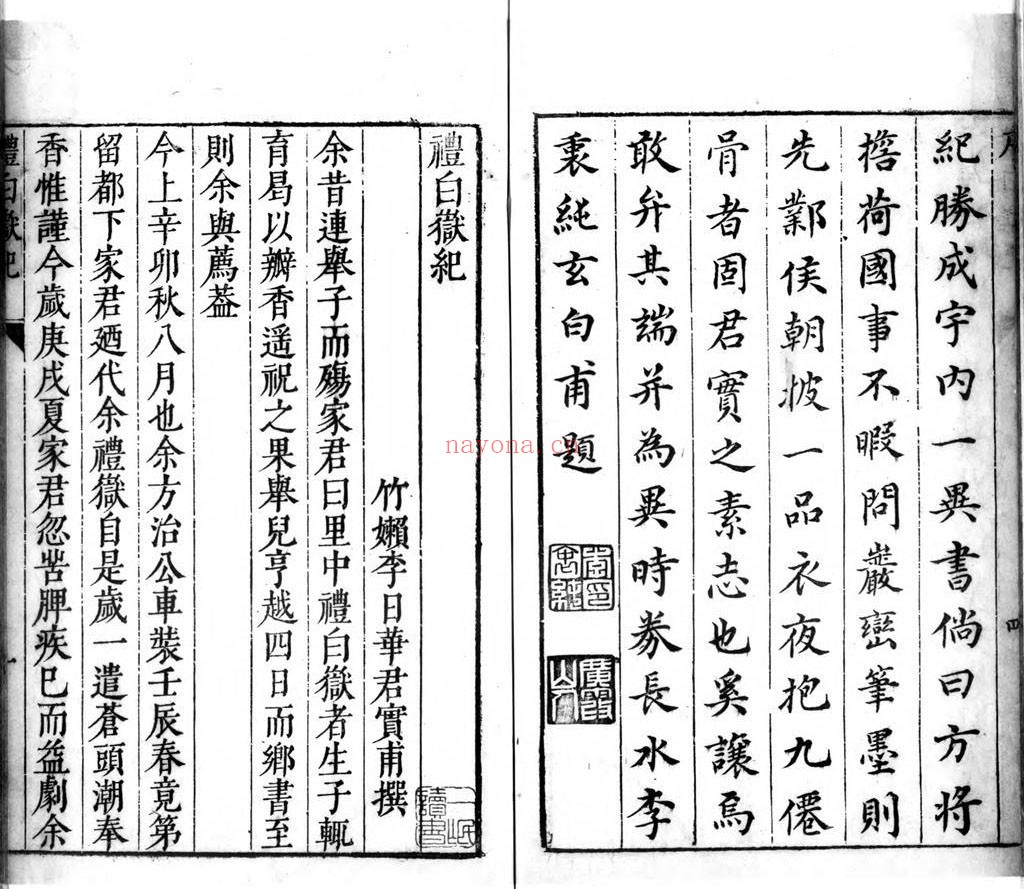 序
四
紀勝成宇內一異書倘曰方將
擔荷國事不暇問巖巒筆墨則
先鄴侯朝披一品衣夜抱九僊
骨者固君實之素志也奚讓焉
敢弁其端并為異時券長水李
衷純玄白甫題
禮白嶽紀
竹嬾李日華君實甫撰
余昔連舉子而殤家君曰里中禮白嶽者生子輒
育曷以瓣香遥祝之果舉兒亨越四日而鄉書至
則余與薦葢
今上辛卯秋八月也余方治公車裝壬辰春竟第
留都下家君廼代余禮嶽自是歲一遣蒼頭潮奉
香惟謹今歲庚戌夏家君忽苦脾疾巳而益劇余
禮白嶽紀
一
nayona.cn